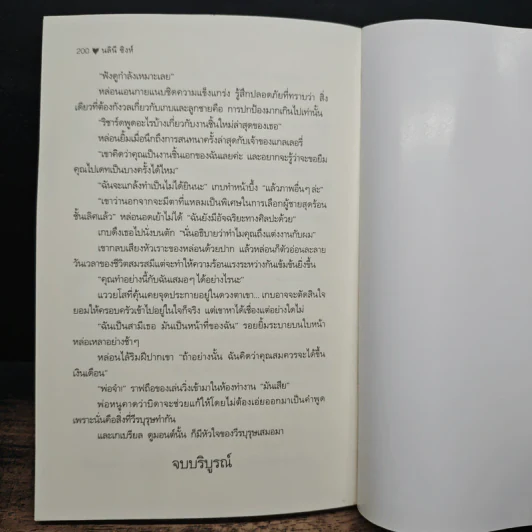 200 ♥ นลินี ซิงห์
"ฟังดูกำลังเหมาะเลย"
หล่อนเอนกายแนบชิดความแข็งแกร่ง รู้สึกปลอดภัยที่ทราบว่า สิ่ง
เดียวที่ต้องกังวลเกี่ยวกับเกบและลูกชายคือ การปกป้องมากเกินไปเท่านั้น
"ริชาร์ดพูดอะไรบ้างเกี่ยวกับงานชิ้นใหม่ล่าสุดของเธอ"
หล่อนยิ้มเมื่อนึกถึงการสนทนาครั้งล่าสุดกับเจ้าของแกลเลอรี่
"เขาคิดว่าคุณเป็นงานชิ้นเอกของฉันเลยค่ะ และอยากจะรู้ว่าจะขอยืม
คุณไปเดทเป็นบางครั้งได้ไหม"
"ฉันจะแกล้งทำเป็นไม่ได้ยินนะ" เกบทำหน้าบึ้ง "แล้วภาพอื่นๆ ล่ะ"
"เขาว่านอกจากจะมีตาที่แหลมเป็นพิเศษในการเลือกผู้ชายสุดร้อน
ชั้นเลิศแล้ว" หล่อนอดเย้าไม่ได้ "ฉันยังมีอัจฉริยะทางศิลปะด้วย"
เกบดึงเธอไปนั่งบนตัก "นั่นอธิบายว่าทำไมคุณถึงแต่งงานกับผม"
เขากลบเสียงหัวเราะของหล่อนด้วยปาก แล้วหล่อนก็ตัวอ่อนละลาย
วันเวลาของชีวิตสมรสมีแต่จะทำให้ความร้อนแรงระหว่างกันเข้มข้นยิ่งขึ้น
"คุณทำอย่างนี้กับฉันเสมอๆ ได้อย่างไรนะ"
แววยโสที่คุ้นเคยจุดประกายอยู่ในดวงตาเขา... เกบอาจจะตัดสินใจ
ยอมให้ครอบครัวเข้าไปอยู่ในใจก็จริง แต่เขาหาได้เชื่องแต่อย่างใดไม่
"ฉันเป็นสามีเธอ มันเป็นหน้าที่ของฉัน" รอยยิ้มระบายบนใบหน้า
หล่อเหลาอย่างช้าๆ
หล่อนไล้ริมฝีปากเขา "ถ้าอย่างนั้น ฉันคิดว่าคุณสมควรจะได้ขึ้น
เงินเดือน"
"พ่อจ๋า!" ราฟถือของเล่นวิ่งเข้ามาในห้องทำงาน "มันเสีย"
พ่อหนูคาดว่าบิดาจะช่วยแก้ให้โดยไม่ต้องเอ่ยออกมาเป็นคำพูด
เพราะนั่นคือสิ่งที่วีรบุรุษทำกัน
และเกเบรียล ดูมอนด์นั้น ก็มีหัวใจของวีรบุรุษเสมอมา
จบบริบูรณ์